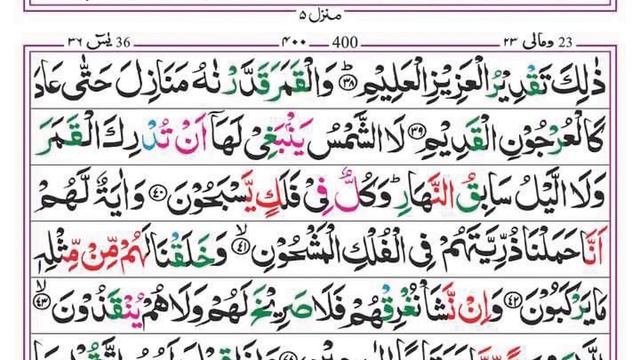 منزل ۵
23 ومالی ۲۳ 400 ۴۰۰ 36 یٰسٓ ۳۶
ذٰلِكَ تَقْدِيْرُ الْعَزِيْزِ الْعَلِيْمِ ؕ۳۸ وَالْقَمَرَ قَدَّرْنٰهُ مَنَازِلَ حَتّٰى عَادَ
كَالْعُرْجُوْنِ الْقَدِيْمِ ۳۹ لَا الشَّمْسُ يَنْۢبَغِىْ لَهَاۤ اَنْ تُدْرِكَ الْقَمَرَ
وَلَا الَّيْلُ سَابِقُ النَّهَارِ ؕ وَكُلٌّ فِىْ فَلَكٍ يَّسْبَحُوْنَ ۴۰ وَاٰيَةٌ لَّهُمْ
اَنَّا حَمَلْنَا ذُرِّيَّتَهُمْ فِى الْفُلْكِ الْمَشْحُوْنِ ۙ۴۱ وَخَلَقْنَا لَهُمْ مِّنْ مِّثْلِهٖ
مَا يَرْكَبُوْنَ ۴۲ وَاِنْ نَّشَاْ نُغْرِقْهُمْ فَلَا صَرِيْخَ لَهُمْ وَلَا هُمْ يُنْقَذُوْنَ ۙ۴۳